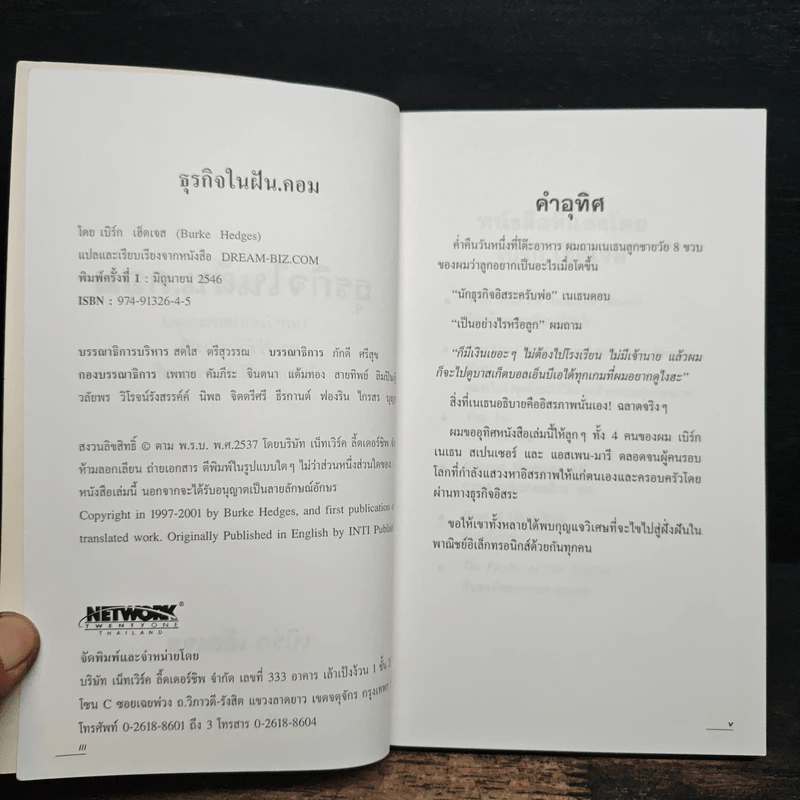 ธุรกิจในฝัน.คอม
โดย เบิร์ก เฮ็ดเจส (Burke Hedges)
แปลและเรียบเรียงจากหนังสือ DREAM-BIZ.COM
พิมพ์ครั้งที่ 1 : มิถุนายน 2546
ISBN : 974-91326-4-5
บรรณาธิการบริหาร สดใส ตรีสุวรรณ บรรณาธิการ ภักดี ศรีสุข
กองบรรณาธิการ เพทาย คัมภีระ จินตนา แต้มทอง สายทิพย์
วลัยพร วิโรจน์รังสรรค์ นิพล จิตตรีศรี ธีรกานต์ ฟองริน ไกรสร
สงวนลิขสิทธิ์ © ตาม พ.ร.บ. พ.ศ.2537 โดยบริษัท เน็ทเวิร์ค ลี้ดเดอร์ชิพ
ห้ามลอกเลียน ถ่ายเอกสาร ตีพิมพ์ในรูปแบบใดๆ ไม่ว่าส่วนหนึ่งส่วนใดของ
หนังสือเล่มนี้ นอกจากจะได้รับอนุญาตเป็นลายลักษณ์อักษร
Copyright in 1997-2001 by Burke Hedges, and first publication
translated work. Originally Published in English by INTI
NETWORK®
TWENTYONE
THAILAND
จัดพิมพ์และจำหน่ายโดย
บริษัท เน็ทเวิร์ค ลี้ดเดอร์ชิพ จำกัด เลขที่ 333 อาคาร เล้าเป้งง้วน 1 ชั้น
โซน C ซอยเฉยพ่วง ถ.วิภาวดี-รังสิต แขวงลาดยาว เขตจตุจักร กรุงเทพฯ
โทรศัพท์ 0-2618-8601 ถึง 3 โทรสาร 0-2618-8604
iii
คำอุทิศ
ค่ำคืนวันหนึ่งที่โต๊ะอาหาร ผมถามเนเธนลูกชายวัย 8 ขวบ
ของผมว่าลูกอยากเป็นอะไรเมื่อโตขึ้น
“นักธุรกิจอิสระครับพ่อ” เนเธนตอบ
“เป็นอย่างไรหรือลูก” ผมถาม
“ก็มีเงินเยอะๆ ไม่ต้องไปโรงเรียน ไม่มีเจ้านาย แล้วผม
ก็จะไปดูบาสเก็ตบอลเอ็นบีเอได้ทุกเกมที่ผมอยากดูไงฮะ”
สิ่งที่เนเธนอธิบายคืออิสรภาพนั่นเอง! ฉลาดจริงๆ
ผมขออุทิศหนังสือเล่มนี้ให้ลูกๆ ทั้ง 4 คนของผม เบิร์ก
เนเธน สเปนเซอร์ และ แอสเพน-มารี ตลอดจนผู้คนรอบ
โลกที่กำลังแสวงหาอิสรภาพให้แก่ตนเองและครอบครัวโดย
ผ่านทางธุรกิจอิสระ
ขอให้เขาทั้งหลายได้พบกุญแจวิเศษที่จะไขไปสู่ฝั่งฝันใน
พาณิชย์อิเล็กทรอนิกส์ด้วยกันทุกคน
v